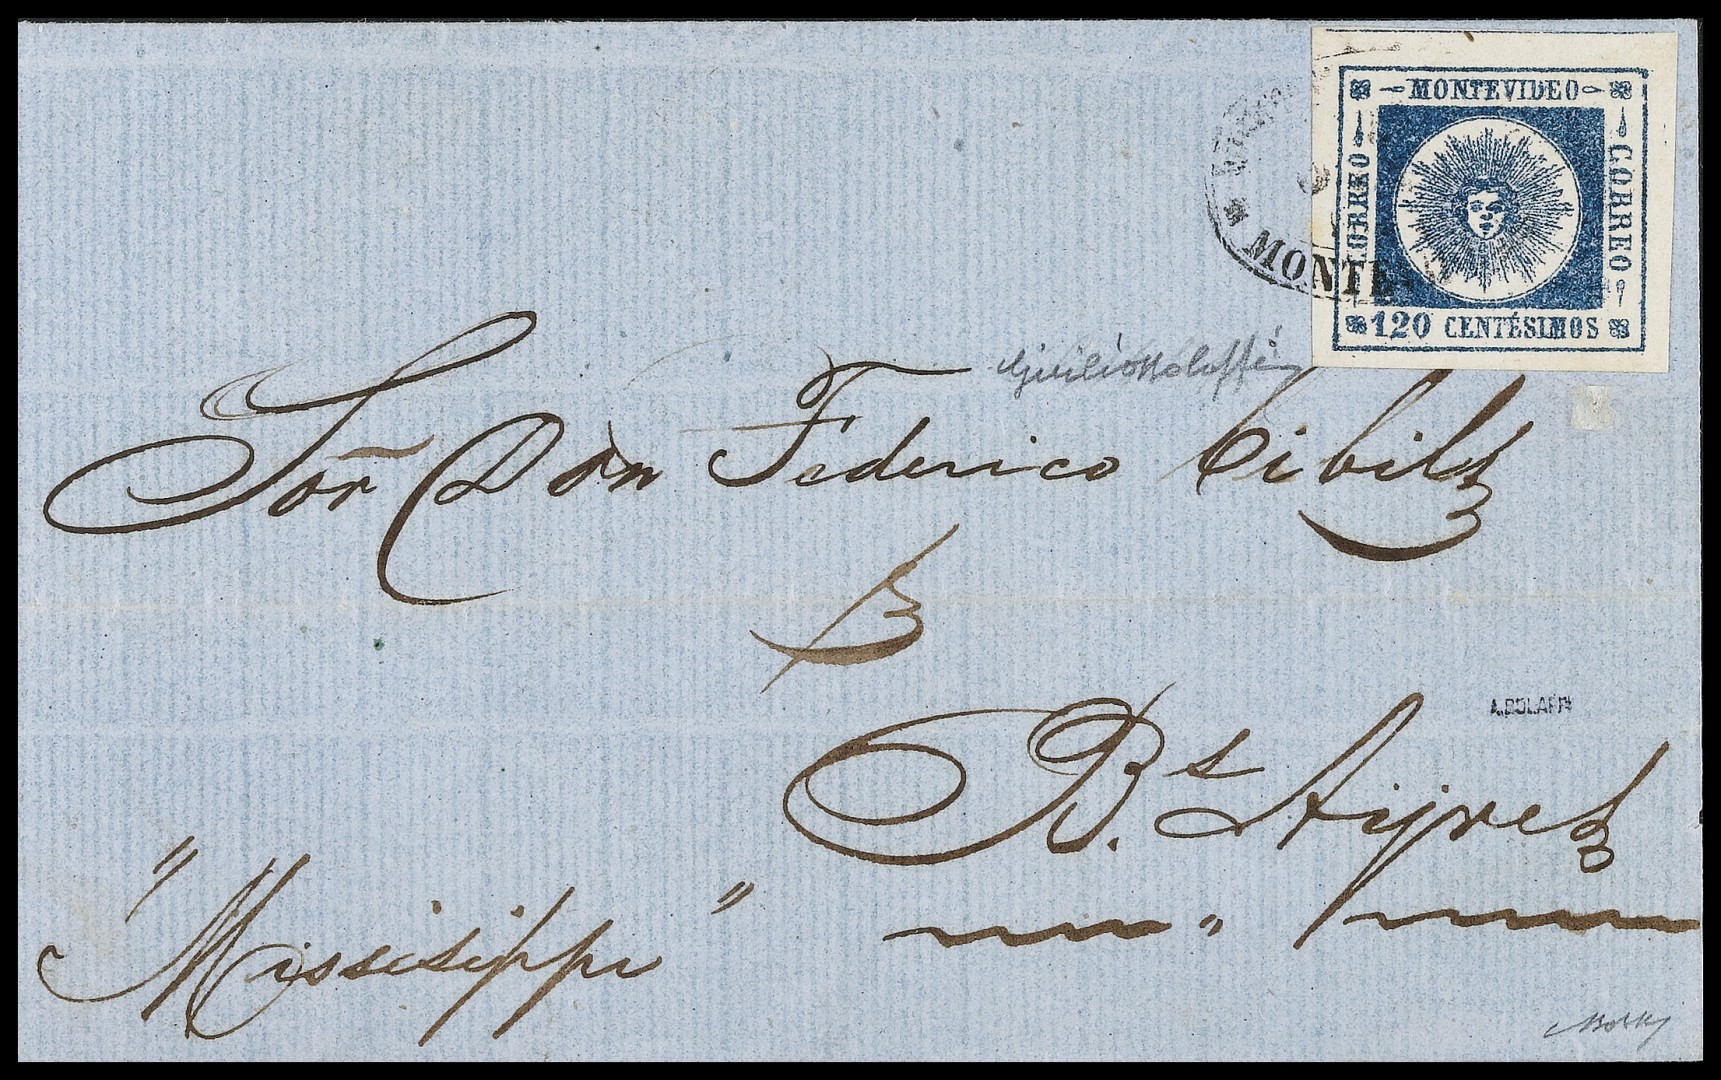 MONTEVIDEO
CORREO
CORREO
120 CENTÉSIMOS
MONTE
Sor Don Federico Cibils
Bs. Ayres
A.BOLAFFI
"Mississippi"